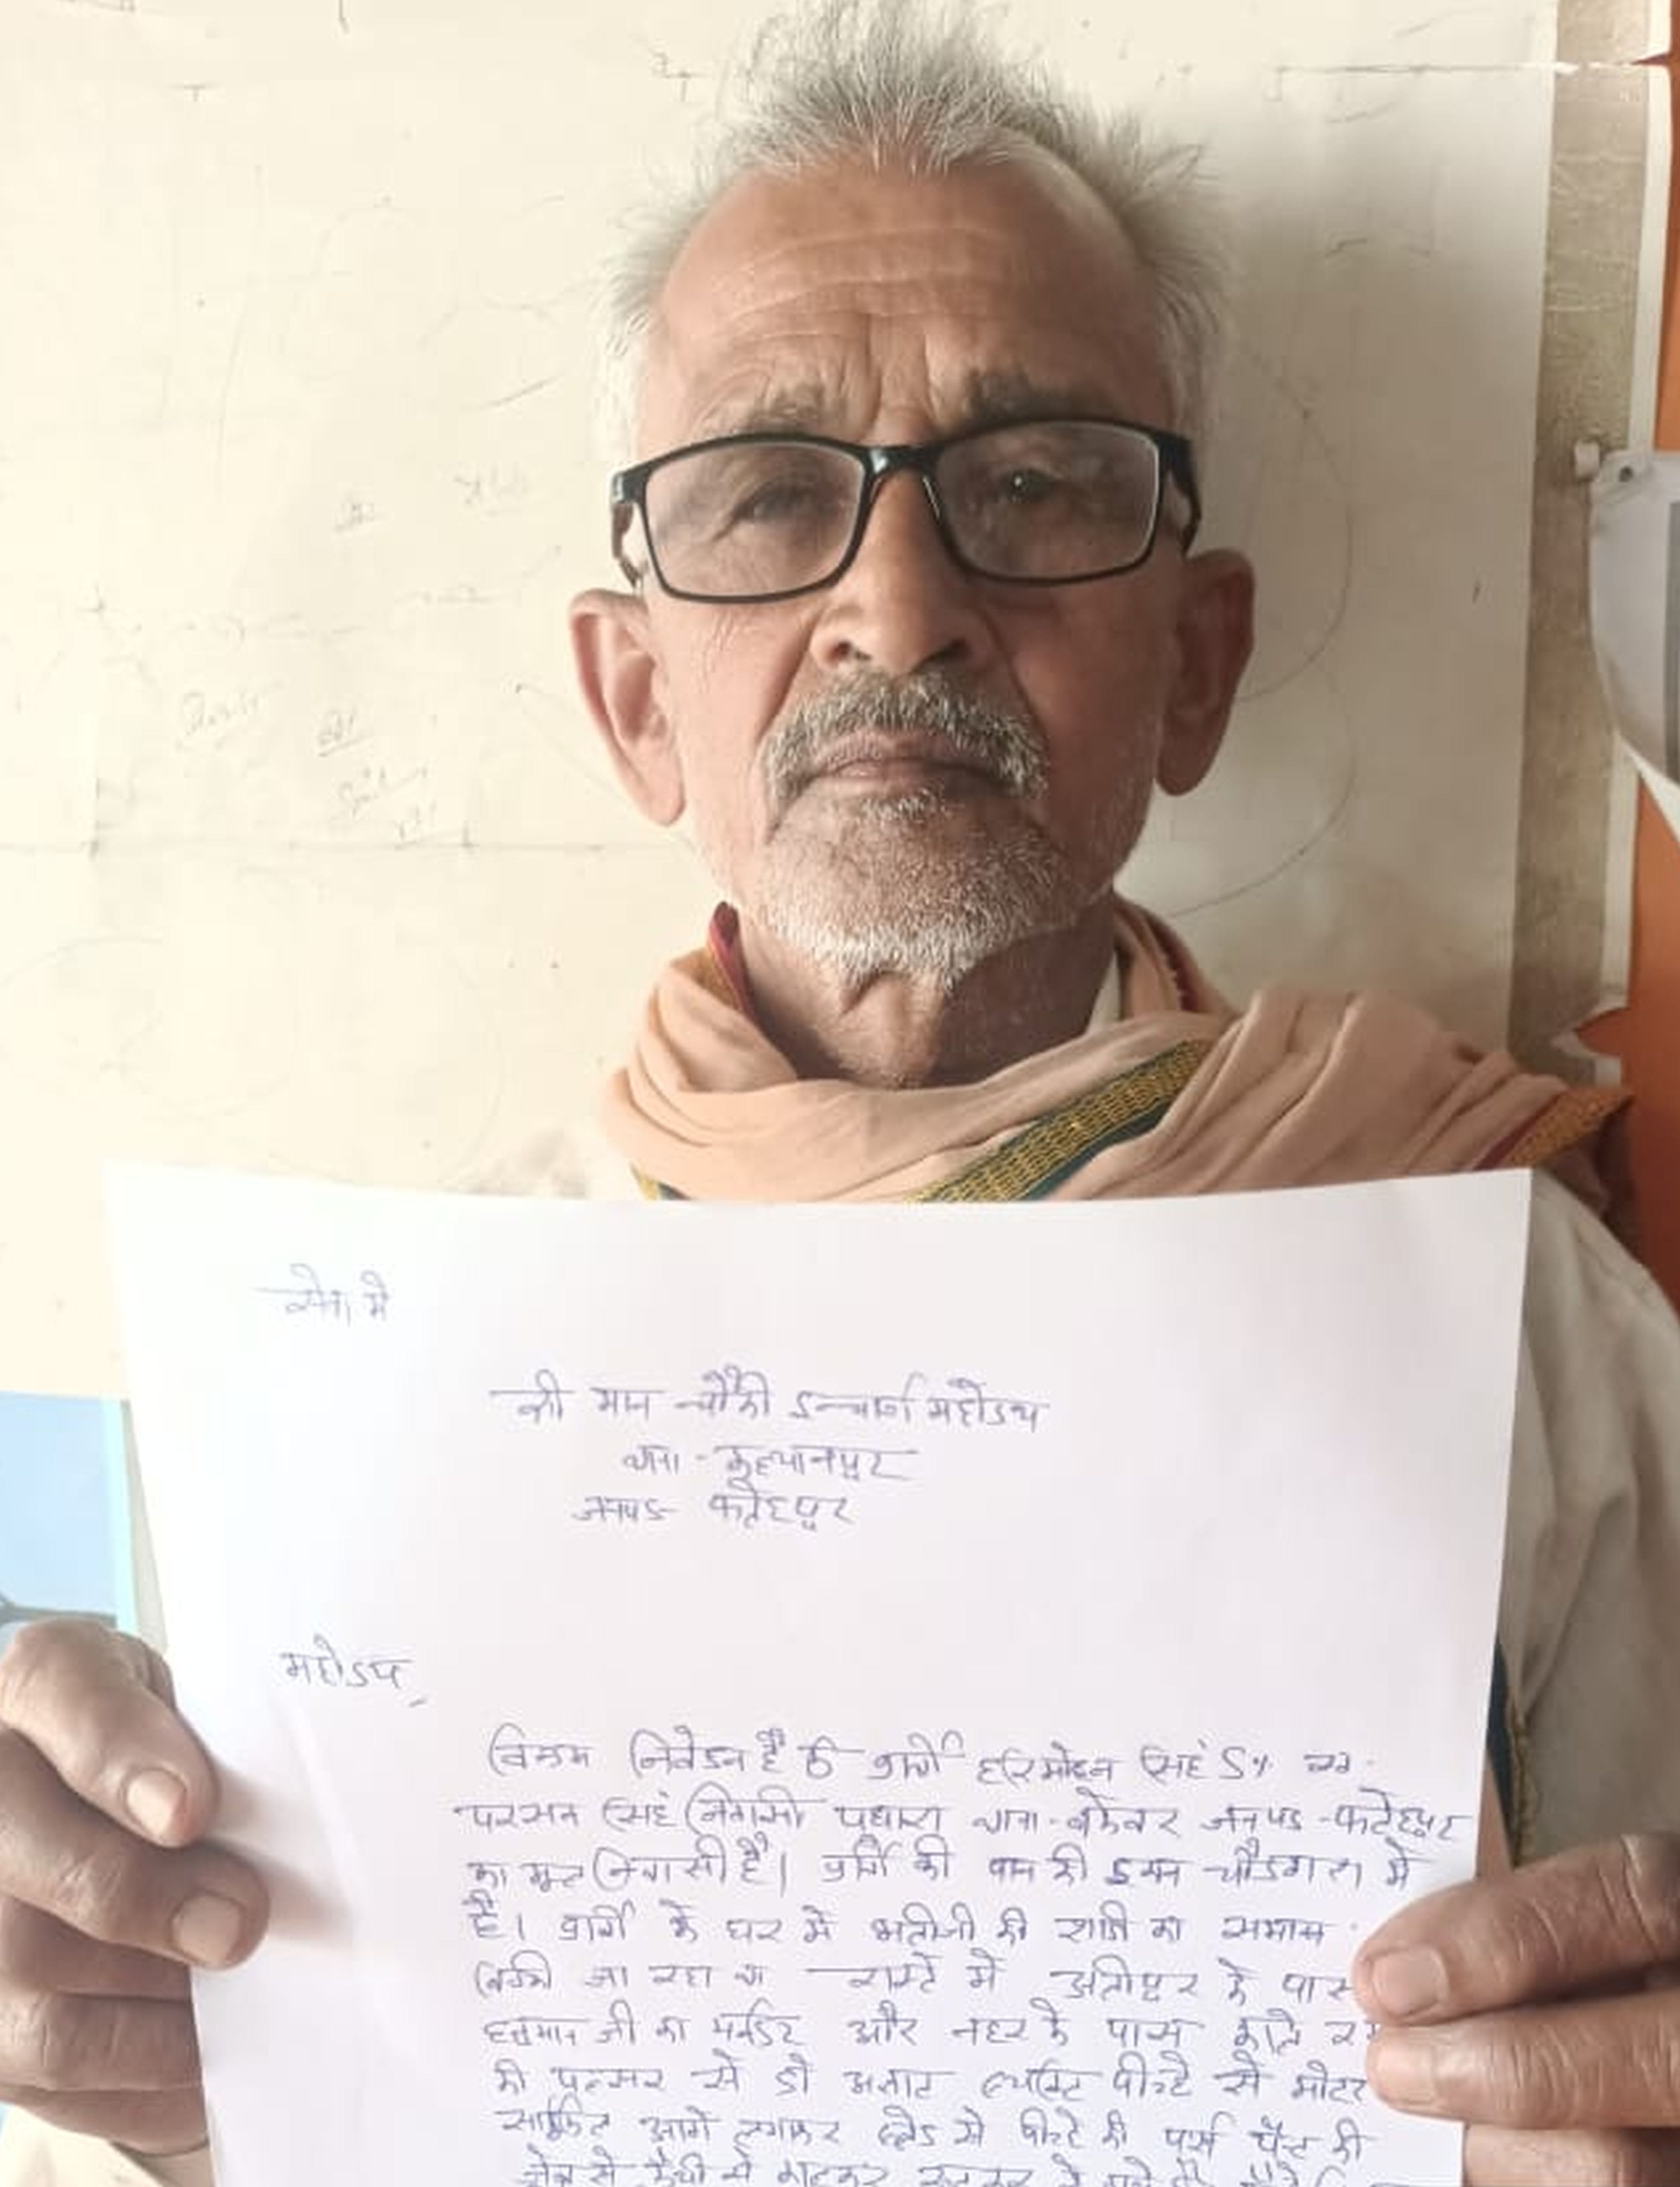 सेवा में
श्री मान चौकी इन्चार्ज महोदय
थाना - कल्यानपुर
जनपद - फतेहपुर
महोदय,
विनम्र निवेदन है कि प्रार्थी हरिमोहन सिंह S/o स्व.
परसन सिंह निवासी पधारा थाना - बकेवर जनपद - फतेहपुर
का मूल निवासी है। प्रार्थी की पान की दुकान चौडगरा में
है। प्रार्थी के घर में भतीजी की शादी का समान
जा रहा था रास्ते में के पास
हनुमान जी का मन्दिर और नहर के पास काले रंग
की पल्सर से दो अज्ञात व्यक्ति पीछे से मोटर
साईकिल आगे लगाकर ब्लेड से पीछे की पर्स पैन्ट की
जेब से कैची से काटकर